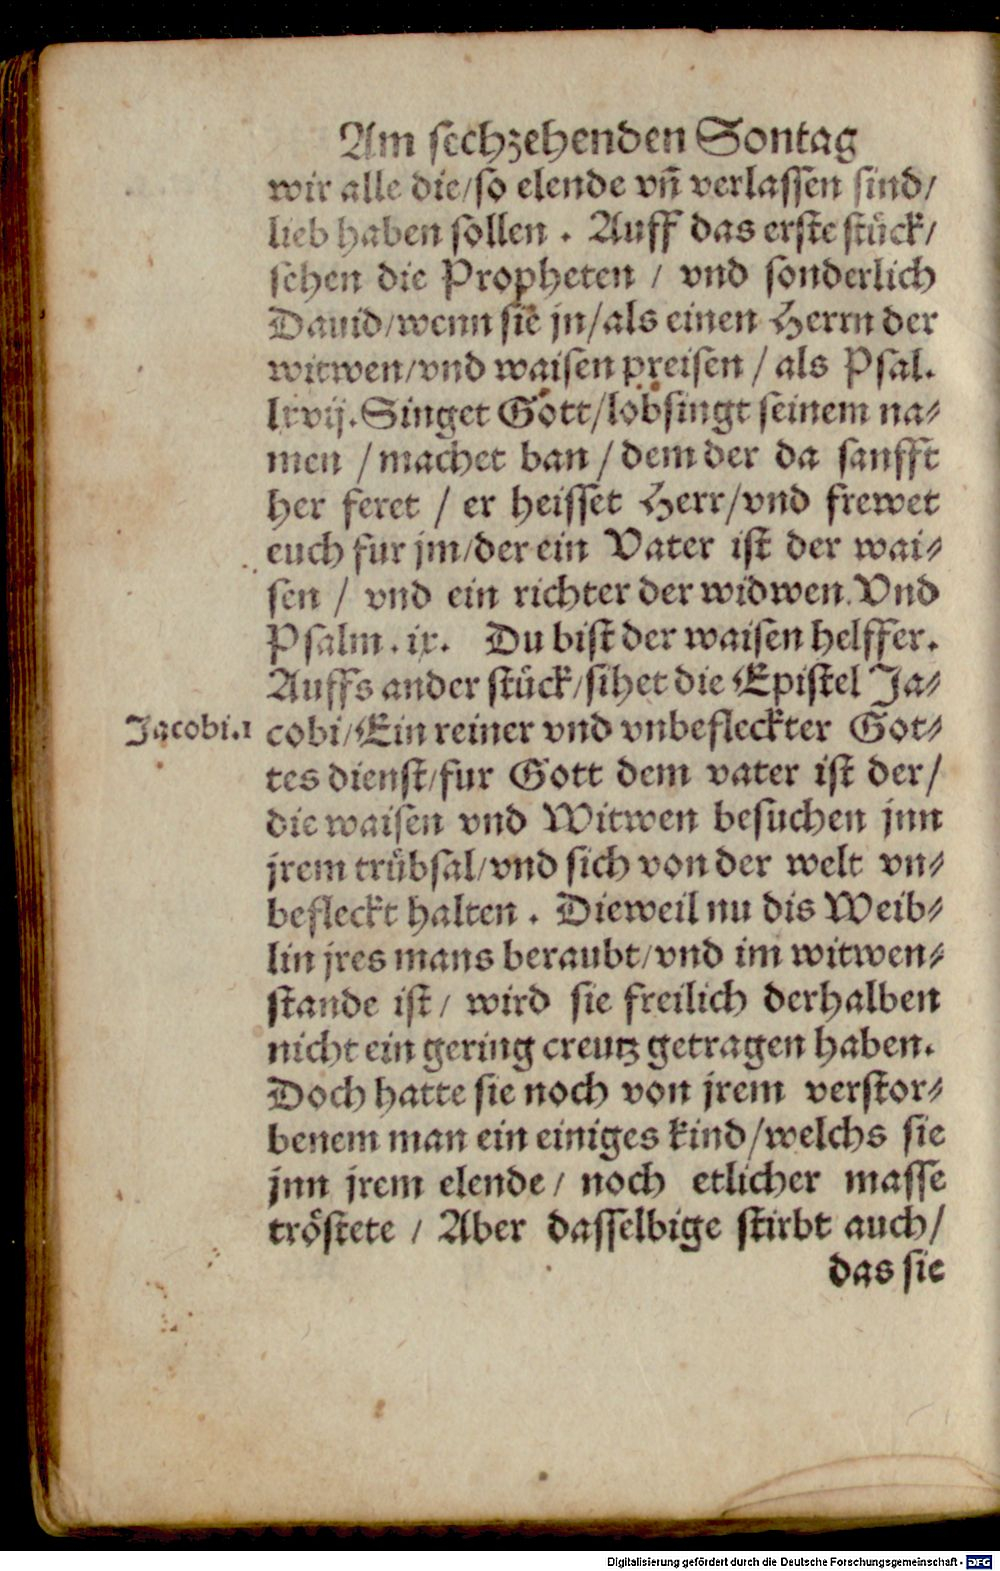 Am sechzehenden Sontag
wir alle die/so elende vñ verlassen sind/
lieb haben sollen . Auff das erste stück/
sehen die Propheten / vnd sonderlich
Dauid/wenn sie jn/als einen Herrn der
witwen/vnd waisen preisen / als Psal.
lxvij. Singet Gott/lobsingt seinem na⸗
men /machet ban / dem der da sanfft
her feret / er heisset Herr/vnd frewet
euch fur jm/der ein Vater ist der wai⸗
sen / vnd ein richter der widwen. Vnd
Psalm. ix. Du bist der waisen helffer.
Auffs ander stück/sihet die Epistel Ja⸗
Jacobi.1 cobi/Ein reiner vnd vnbefleckter Got⸗
tes dienst/fur Gott dem vater ist der/
die waisen vnd Witwen besuchen jnn
jrem trübsal/vnd sich von der welt vn⸗
befleckt halten . Dieweil nu dis Weib⸗
lin jres mans beraubt/vnd im witwen⸗
stande ist/ wird sie freilich derhalben
nicht ein gering creutz getragen haben.
Doch hatte sie noch von jrem verstor⸗
benem man ein einiges kind/welchs sie
jnn jrem elende/ noch etlicher masse
tröstete / Aber dasselbige stirbt auch/
das sie
Digitalisierung gefördert durch die Deutsche Forschungsgemeinschaft - DFG